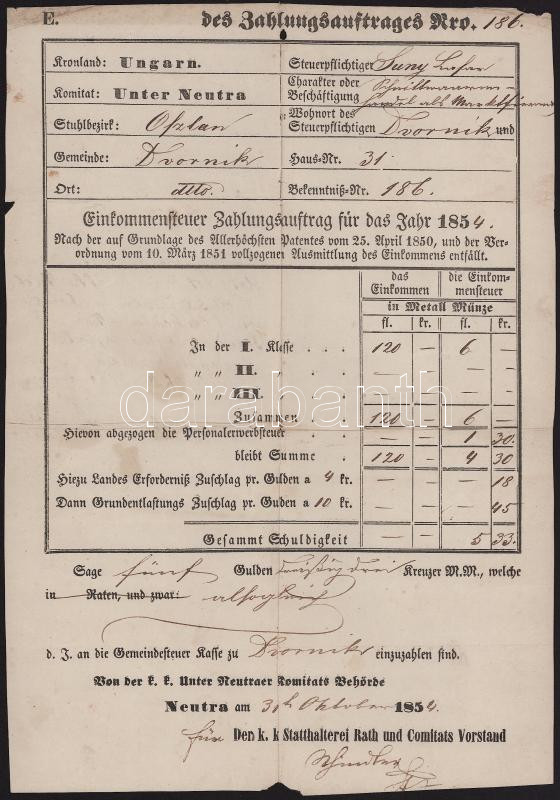 E.
des Zahlungsauftrages Nro. 186.
Kronland: Ungarn.
Steuerpflichtiger
Komitat: Unter Neutra
Charakter oder Beschäftigung
Stuhlbezirk: Oszlan
Wohnort des Steuerpflichtigen Dvornik und
Gemeinde: Dvornik
Haus-Nr. 31
Ort: dtto.
Bekenntniß-Nr. 186.
Einkommensteuer Zahlungsauftrag für das Jahr 1854.
Nach der auf Grundlage des Allerhöchsten Patentes vom 25. April 1850, und der Ver-
ordnung vom 10. März 1851 vollzogener Ausmittlung des Einkommens entfällt.
das Einkommen
die Einkom-
mensteuer
in Metall Münze
fl. kr. fl. kr.
In der I. Klasse . . . 120 — 6 —
" " II. " . . . — — — —
" " III. " . . . — — — —
Zusammen . . 120 — 6 —
Hievon abgezogen die Personalerwerbsteuer . . — — 1 30.
bleibt Summe . . 120 — 4 30
Hiezu Landes Erforderniß Zuschlag pr. Gulden a 4 kr. — — — 18
Dann Grundentlastungs Zuschlag pr. Guden a 10 kr. — — — 45
Gesammt Schuldigkeit — — 5 33.
darabanth
Sage fünf Gulden dreißig drei Kreuzer M.M., welche
in Raten, und zwar: alsogleich
d. J. an die Gemeindesteuer Kasse zu Dvornik einzuzahlen sind.
Von der k. k. Unter Neutraer Komitats Behörde
Neutra am 31t Oktober 1854.
für Den k. k Statthalterei Rath und Comitats Vorstand